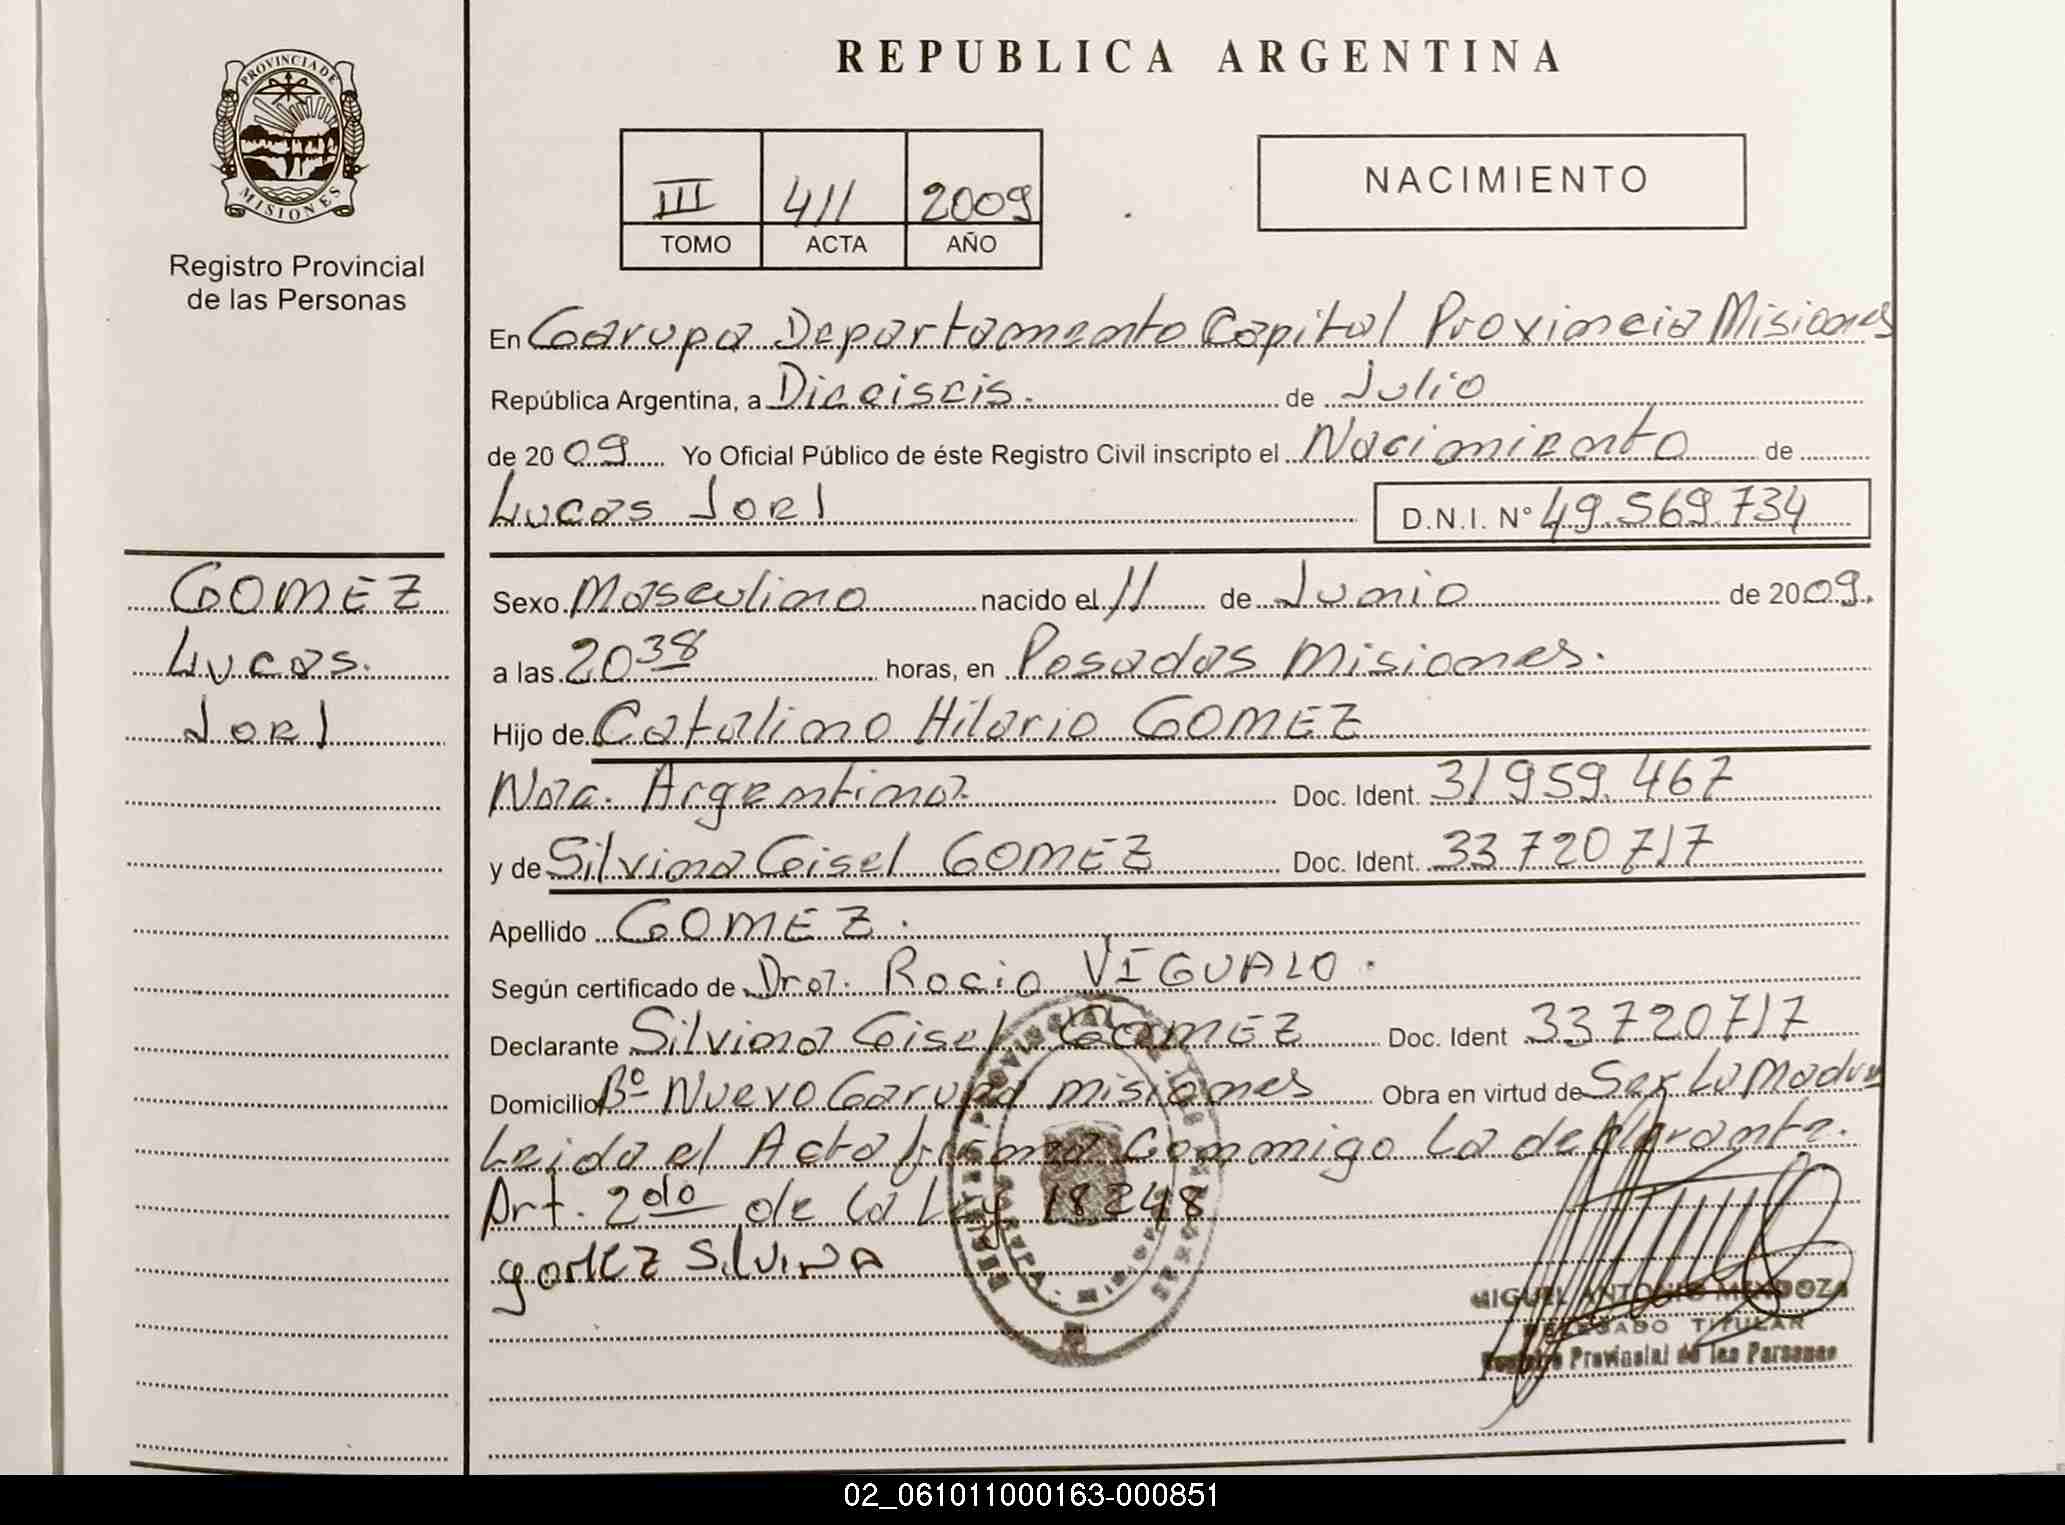 PROVINCIA DE
MISIONES
Registro Provincial
de las Personas
REPUBLICA ARGENTINA
III 411 2009
TOMO ACTA AÑO
NACIMIENTO
En Garupa Departamento Capital Provincia Misiones
República Argentina, a Dieciseis. de Julio
de 2009 Yo Oficial Público de éste Registro Civil inscripto el Nacimiento de
Lucas Joel D.N.I. N° 49.569.734
GOMEZ
Lucas.
Joel
Sexo Masculino nacido el 11 de Junio de 2009.
a las 20 38 horas, en Posadas Misiones.
Hijo de Catalino Hilario GOMEZ
Nac. Argentina. Doc. Ident. 31959.467
y de Silvina Gisel GOMEZ Doc. Ident. 33720717
Apellido GOMEZ.
Según certificado de Dra. Rocio VIGUALO.
Declarante Silvina Gisel GOMEZ Doc. Ident 33720717
Domicilio Bº Nuevo Garupa misiones Obra en virtud de Ser La Madre
Leida el Acta firma Conmigo la declarante.
Art. 2do de la Ley 18248
gomez Silvina
MIGUEL ANTONIO MENDOZA
DELEGADO TITULAR
Registro Provincial de las Personas
02_061011000163-000851